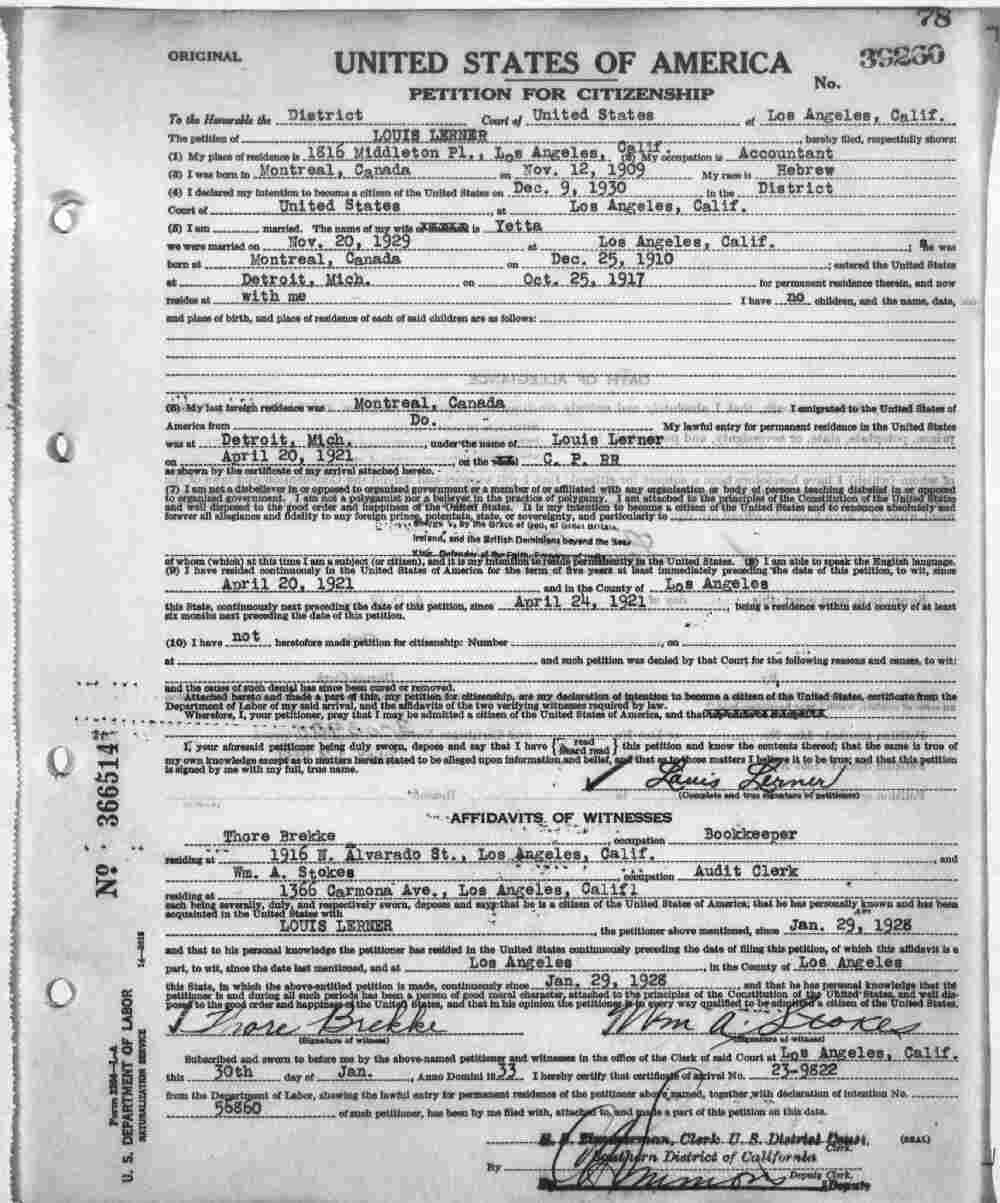 78
ORIGINAL
UNITED STATES OF AMERICA
No. 39260
PETITION FOR CITIZENSHIP
To the Honorable the District Court of United States at Los Angeles, Calif.
The petition of LOUIS LERNER, hereby filed, respectfully shows:
(1) My place of residence is 1816 Middleton Pl., Los Angeles, Calif. (2) My occupation is Accountant
(3) I was born in Montreal, Canada on Nov. 12, 1909 My race is Hebrew
(4) I declared my intention to become a citizen of the United States on Dec. 9, 1930 in the District
Court of United States, at Los Angeles, Calif.
(5) I am married. The name of my wife is Yetta
we were married on Nov. 20, 1929 at Los Angeles, Calif. ; she was
born at Montreal, Canada on Dec. 25, 1910 ; entered the United States
at Detroit, Mich. on Oct. 25, 1917 for permanent residence therein, and now
resides at with me I have no children, and the name, date,
and place of birth, and place of residence of each of said children are as follows:
OATH OF ALLEGIANCE
(6) My last foreign residence was Montreal, Canada I emigrated to the United States of
America from Do. My lawful entry for permanent residence in the United States
was at Detroit, Mich. under the name of Louis Lerner
on April 20, 1921 on the C. P. RR
as shown by the certificate of my arrival attached hereto.
(7) I am not a disbeliever in or opposed to organized government or a member of or affiliated with any organization or body of persons teaching disbelief in or opposed
to organized government. I am not a polygamist nor a believer in the practice of polygamy. I am attached to the principles of the Constitution of the United States
and well disposed to the good order and happiness of the United States. It is my intention to become a citizen of the United States and to renounce absolutely and
forever all allegiance and fidelity to any foreign prince, potentate, state, or sovereignty, and particularly to
George V, by the Grace of God, of Great Britain,
Ireland, and the British Dominions beyond the Seas
King, Defender of the Faith, Emperor of India
of whom (which) at this time I am a subject (or citizen), and it is my intention to reside permanently in the United States. (8) I am able to speak the English language.
(9) I have resided continuously in the United States of America for the term of five years at least immediately preceding the date of this petition, to wit, since
April 20, 1921 and in the County of Los Angeles
this State, continuously next preceding the date of this petition, since April 24, 1921, being a residence within said county of at least
six months next preceding the date of this petition.
(10) I have not heretofore made petition for citizenship: Number , on
at and such petition was denied by that Court for the following reasons and causes, to wit:
and the cause of such denial has since been cured or removed.
Attached hereto and made a part of this, my petition for citizenship, are my declaration of intention to become a citizen of the United States, certificate from the
Department of Labor of my said arrival, and the affidavits of the two verifying witnesses required by law.
Wherefore, I, your petitioner, pray that I may be admitted a citizen of the United States of America, and that
I, your aforesaid petitioner being duly sworn, depose and say that I have { read heard read } this petition and know the contents thereof; that the same is true of
my own knowledge except as to matters herein stated to be alleged upon information and belief, and that as to those matters I believe it to be true; and that this petition
is signed by me with my full, true name.
Louis Lerner
(Complete and true signature of petitioner)
AFFIDAVITS OF WITNESSES
Thore Brekke occupation Bookkeeper
residing at 1916 N. Alvarado St., Los Angeles, Calif. , and
Wm. A. Stokes occupation Audit Clerk
residing at 1366 Carmona Ave., Los Angeles, Calif1
each being severally, duly, and respectively sworn, deposes and says that he is a citizen of the United States of America; that he has personally known and has been
acquainted in the United States with
LOUIS LERNER, the petitioner above mentioned, since Jan. 29, 1928
and that to his personal knowledge the petitioner has resided in the United States continuously preceding the date of filing this petition, of which this affidavit is a
part, to wit, since the date last mentioned, and at Los Angeles, in the County of Los Angeles
this State, in which the above-entitled petition is made, continuously since Jan. 29, 1928 and that he has personal knowledge that the
petitioner is and during all such periods has been a person of good moral character, attached to the principles of the Constitution of the United States, and well dis-
posed to the good order and happiness of the United States, and that in his opinion the petitioner is in every way qualified to be admitted a citizen of the United States.
Thore Brekke Wm A. Stokes
(Signature of witness) (Signature of witness)
Subscribed and sworn to before me by the above-named petitioner and witnesses in the office of the Clerk of said Court at Los Angeles, Calif.
this 30th day of Jan., Anno Domini 1933 I hereby certify that certificate of arrival No. 23-9822
from the Department of Labor, showing the lawful entry for permanent residence of the petitioner above named, together with declaration of intention No.
56860 of such petitioner, has been by me filed with, attached to, and made a part of this petition on this date.
Zimmerman, Clerk U. S. District Court, (SEAL)
Clerk.
Southern District of California
By Deputy Clerk.
By Deputy
No 366514
14—2618
Form 2204—L-A
U. S. DEPARTMENT OF LABOR
NATURALIZATION SERVICE